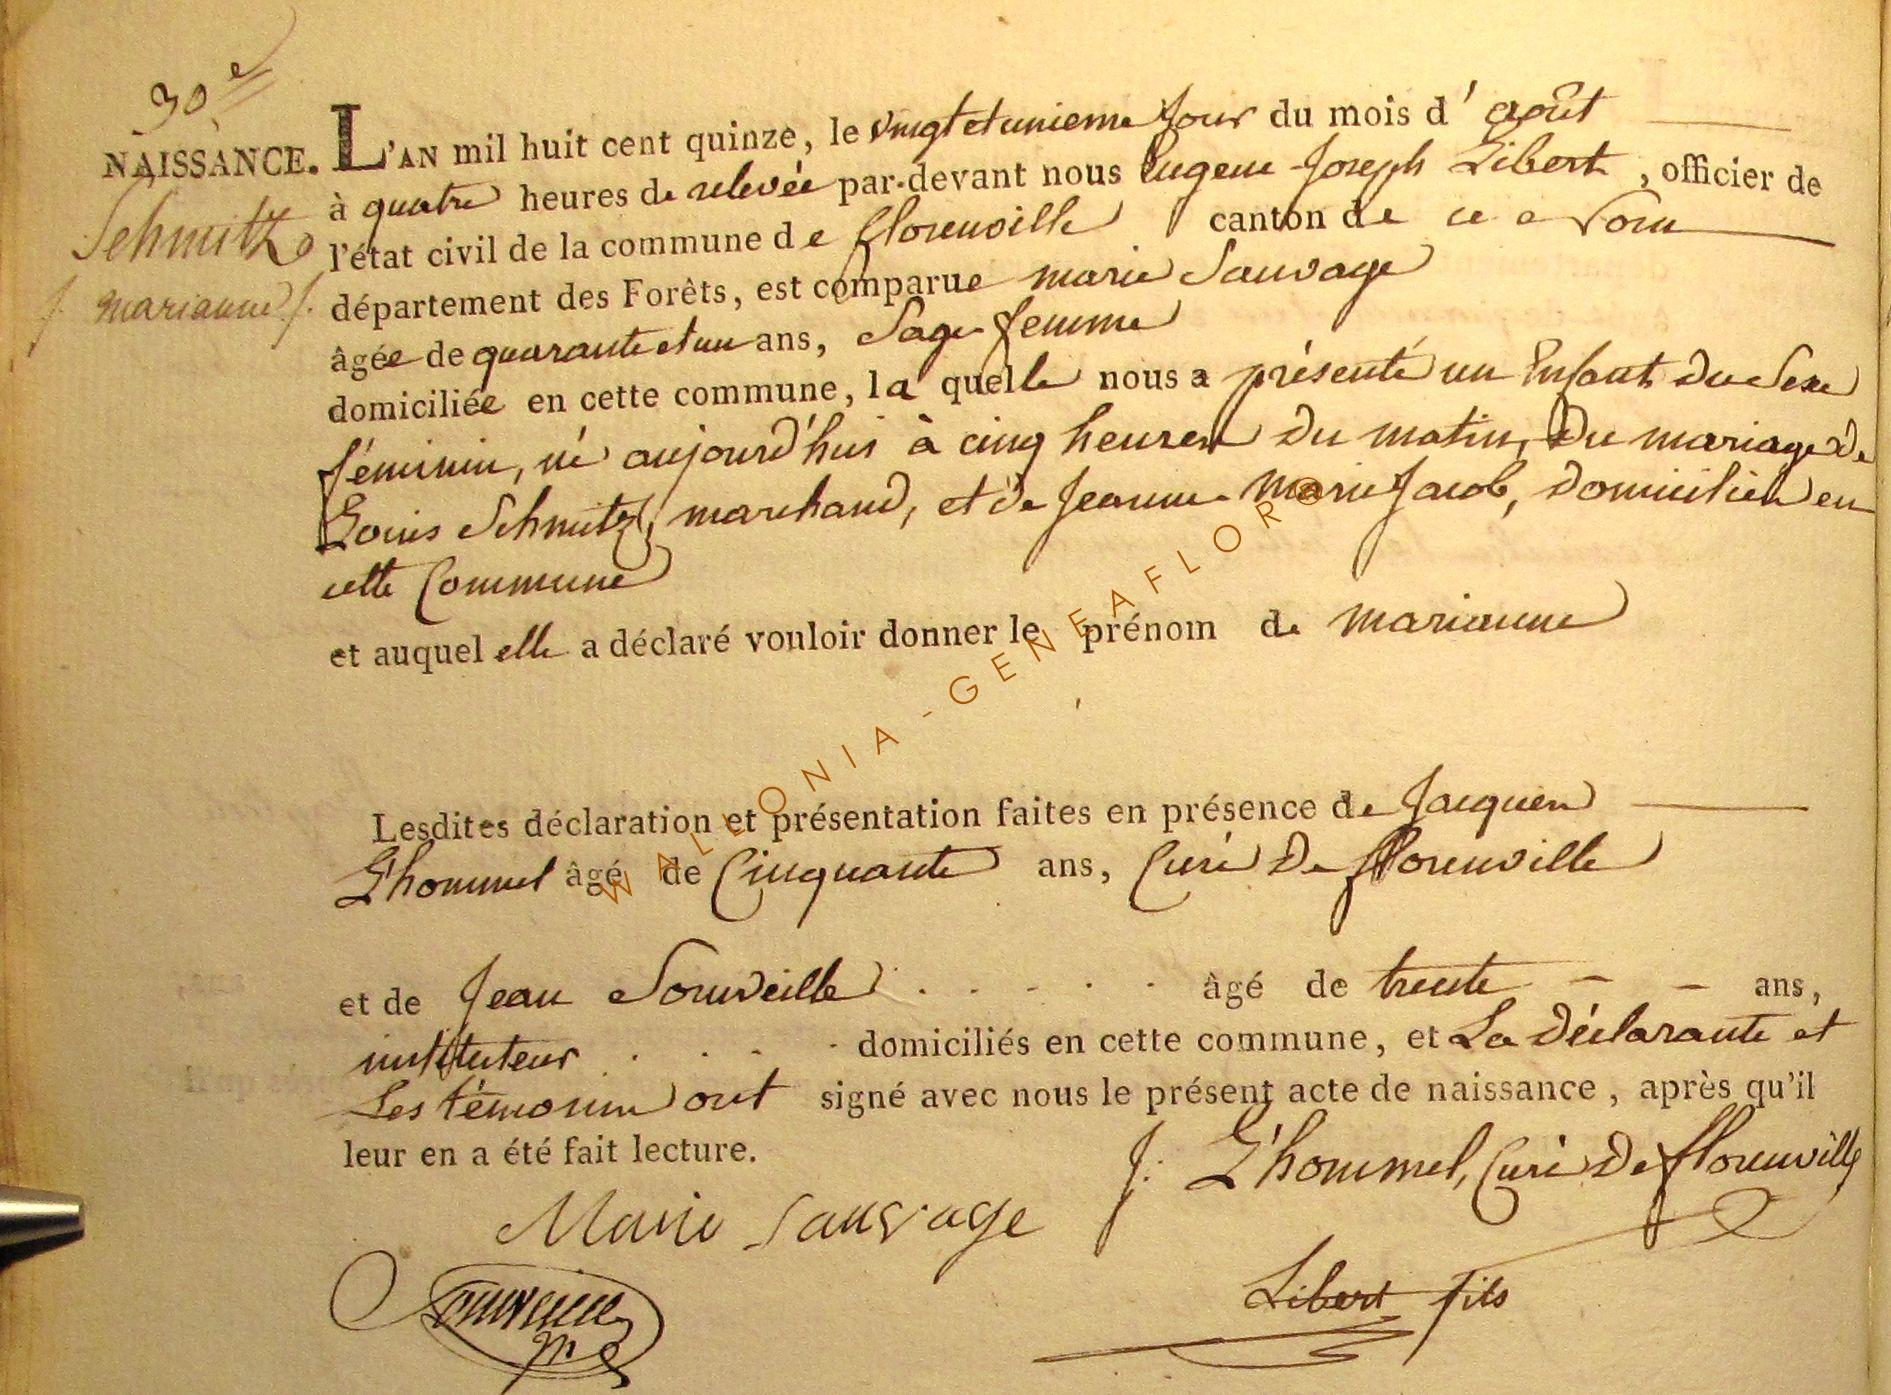 30e
NAISSANCE.
Schmitz
marianne
L'AN mil huit cent quinze, le vingt et unieme Jour du mois d' août
à quatre heures de relevée par-devant nous Eugene Joseph Libert, officier de
l'état civil de la commune de florenville canton de ce nom
département des Forêts, est comparue marie Sauvage
âgée de quarante et un ans, Sage femme
domiciliée en cette commune, la quelle nous a présenté un Enfant du Sexe
féminin, né aujourd'hui à cinq heures du matin, du mariage de
Louis Schmitz, marchand, et de Jeanne marie Jacob, domiciliés en
cette Commune
et auquel elle a déclaré vouloir donner le prénom de marianne
Lesdites déclaration et présentation faites en présence de Jacques
L'hommel âgé de Cinquante ans, Curé de florenville
et de Jean Sonveille âgé de trente ans,
instituteur domiciliés en cette commune, et La déclarante et
Les témoins ont signé avec nous le présent acte de naissance, après qu'il
leur en a été fait lecture.
J: L'hommel, Curé de florenville
Marie Sauvage
Libert fils
WALLONIA - GENEAFLORE